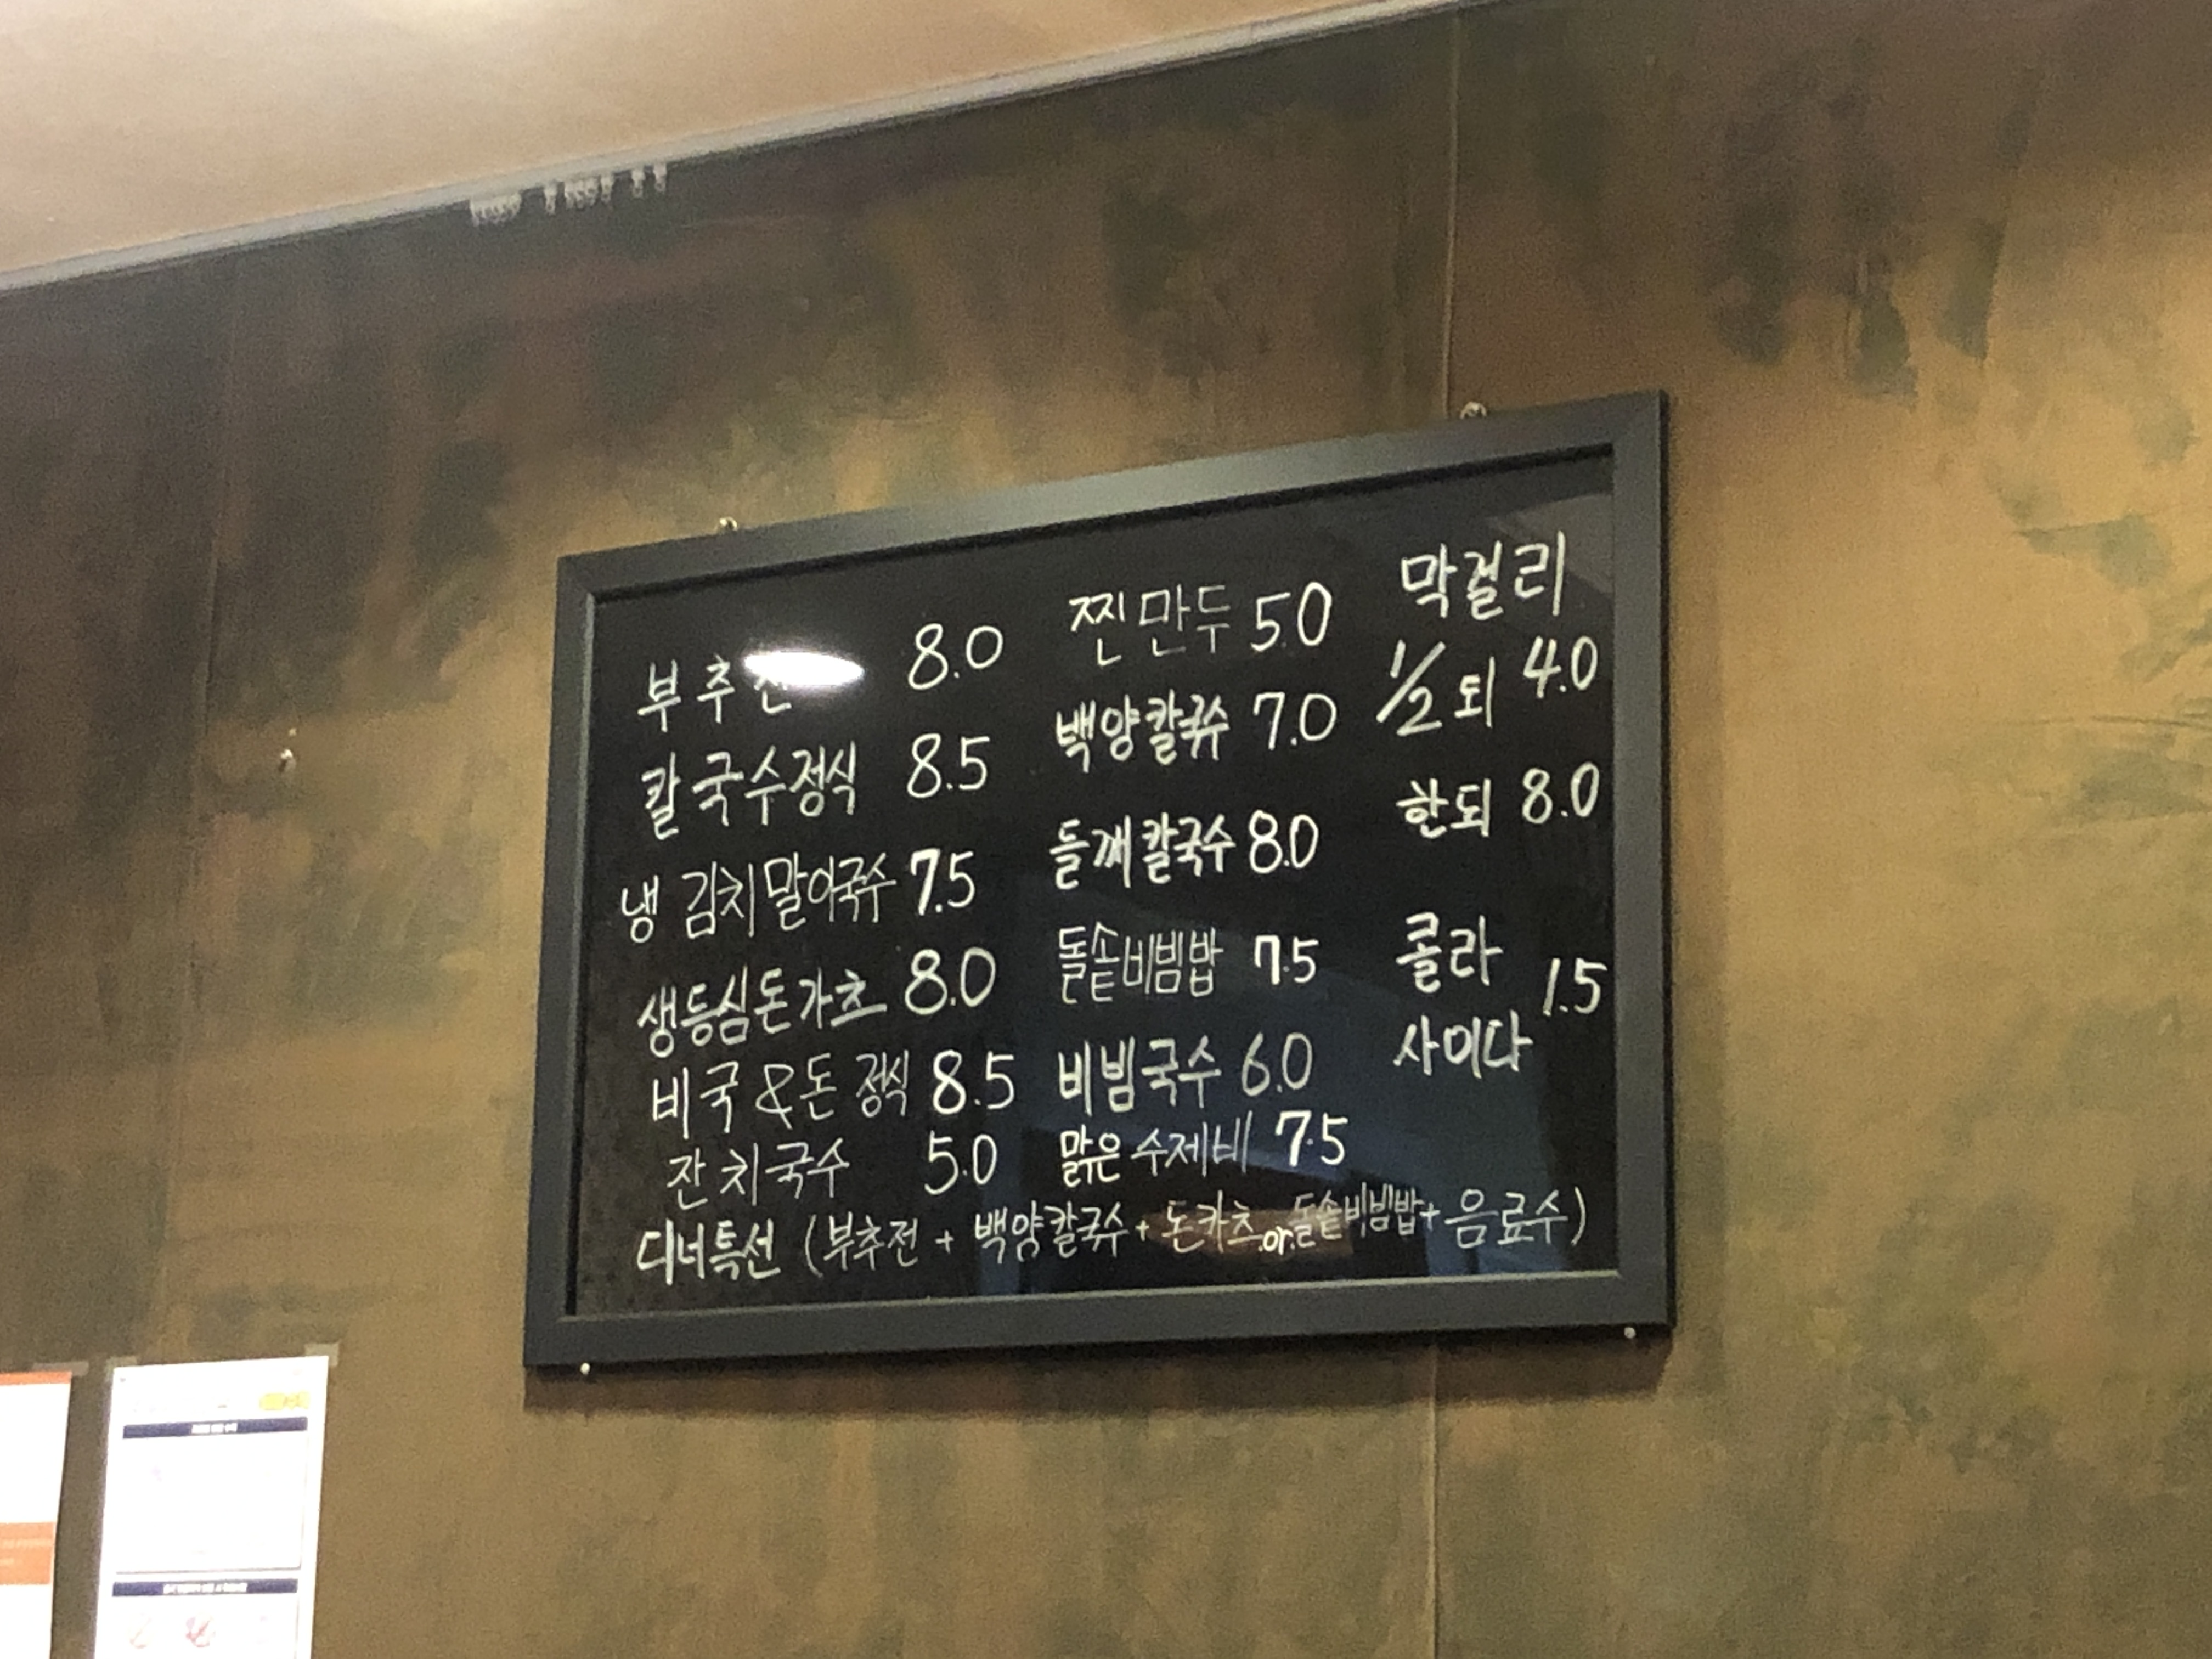 부추전 8.0
칼국수정식 8.5
냉 김치말이국수 7.5
생등심돈가츠 8.0
비국&돈 정식 8.5
잔치국수 5.0
찐만두 5.0
백양칼국수 7.0
들깨칼국수 8.0
돌솥비빔밥 7.5
비빔국수 6.0
맑은 수제비 7.5
막걸리
1/2되 4.0
한되 8.0
콜라
1.5
사이다
디너특선 (부추전 + 백양칼국수 + 돈카츠 or 돌솥비빔밥 + 음료수)